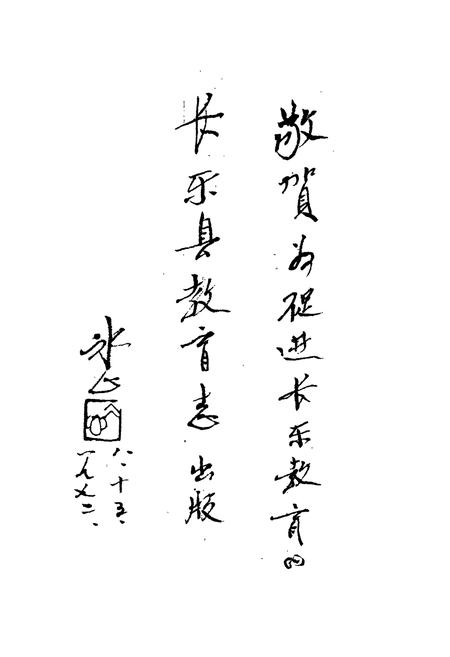 敬贺为促进长乐教育的
长乐县教育志出版
冰心
八.十五.
一九九二.